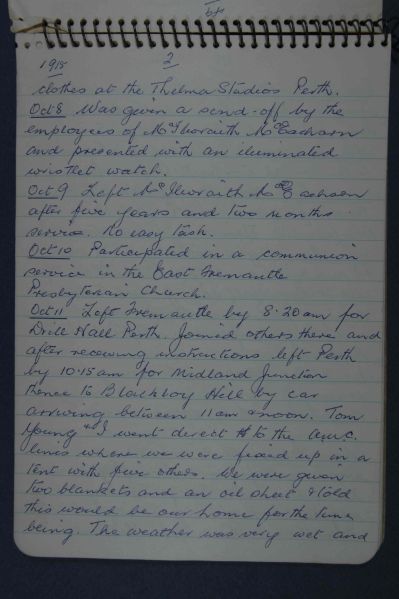 1915 2
clothes at the Thelma Studios Perth.
Oct 8 Was given a send-off by the
employees of McIlwraith McEacharn
and presented with an illuminated
wristlet watch.
Oct 9 Left McIlwraith McEacharn
after five years and two months
service. No easy task.
Oct 10 Participated in a communion
service in the East Fremantle
Presbyterian Church.
Oct 11 Left Fremantle by 8.20am for
Drill Hall Perth. Joined others there and
after receiving instructions left Perth
by 10.15am for Midland Junction
thence to Blackboy Hill by car
arriving between 11am & noon. Tom
Young & I went direct to the A.M.C.
lines where we were fixed up in a
tent with five others. We were given
two blankets and an oil sheet & told
this would be our home for the time
being. The weather was very wet and